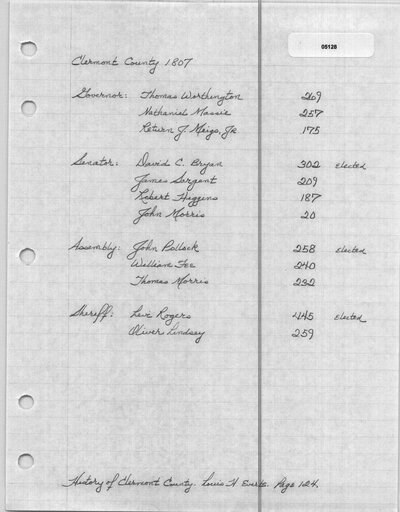 05128
Clermont County 1807
Governor: Thomas Worthington 269
Nathaniel Massie 257
Return J. Meigs, Jr. 175
Senator: David C. Bryan 302 Elected
James Sargent 209
Robert Higgins 187
John Morris 20
Assembly: John Pollock 258 Elected
William Fee 240
Thomas Morris 232
Sheriff: Levi Rogers 445 Elected
Oliver Lindsay 259
History of Clermont County. Louis H Everts. Page 124.